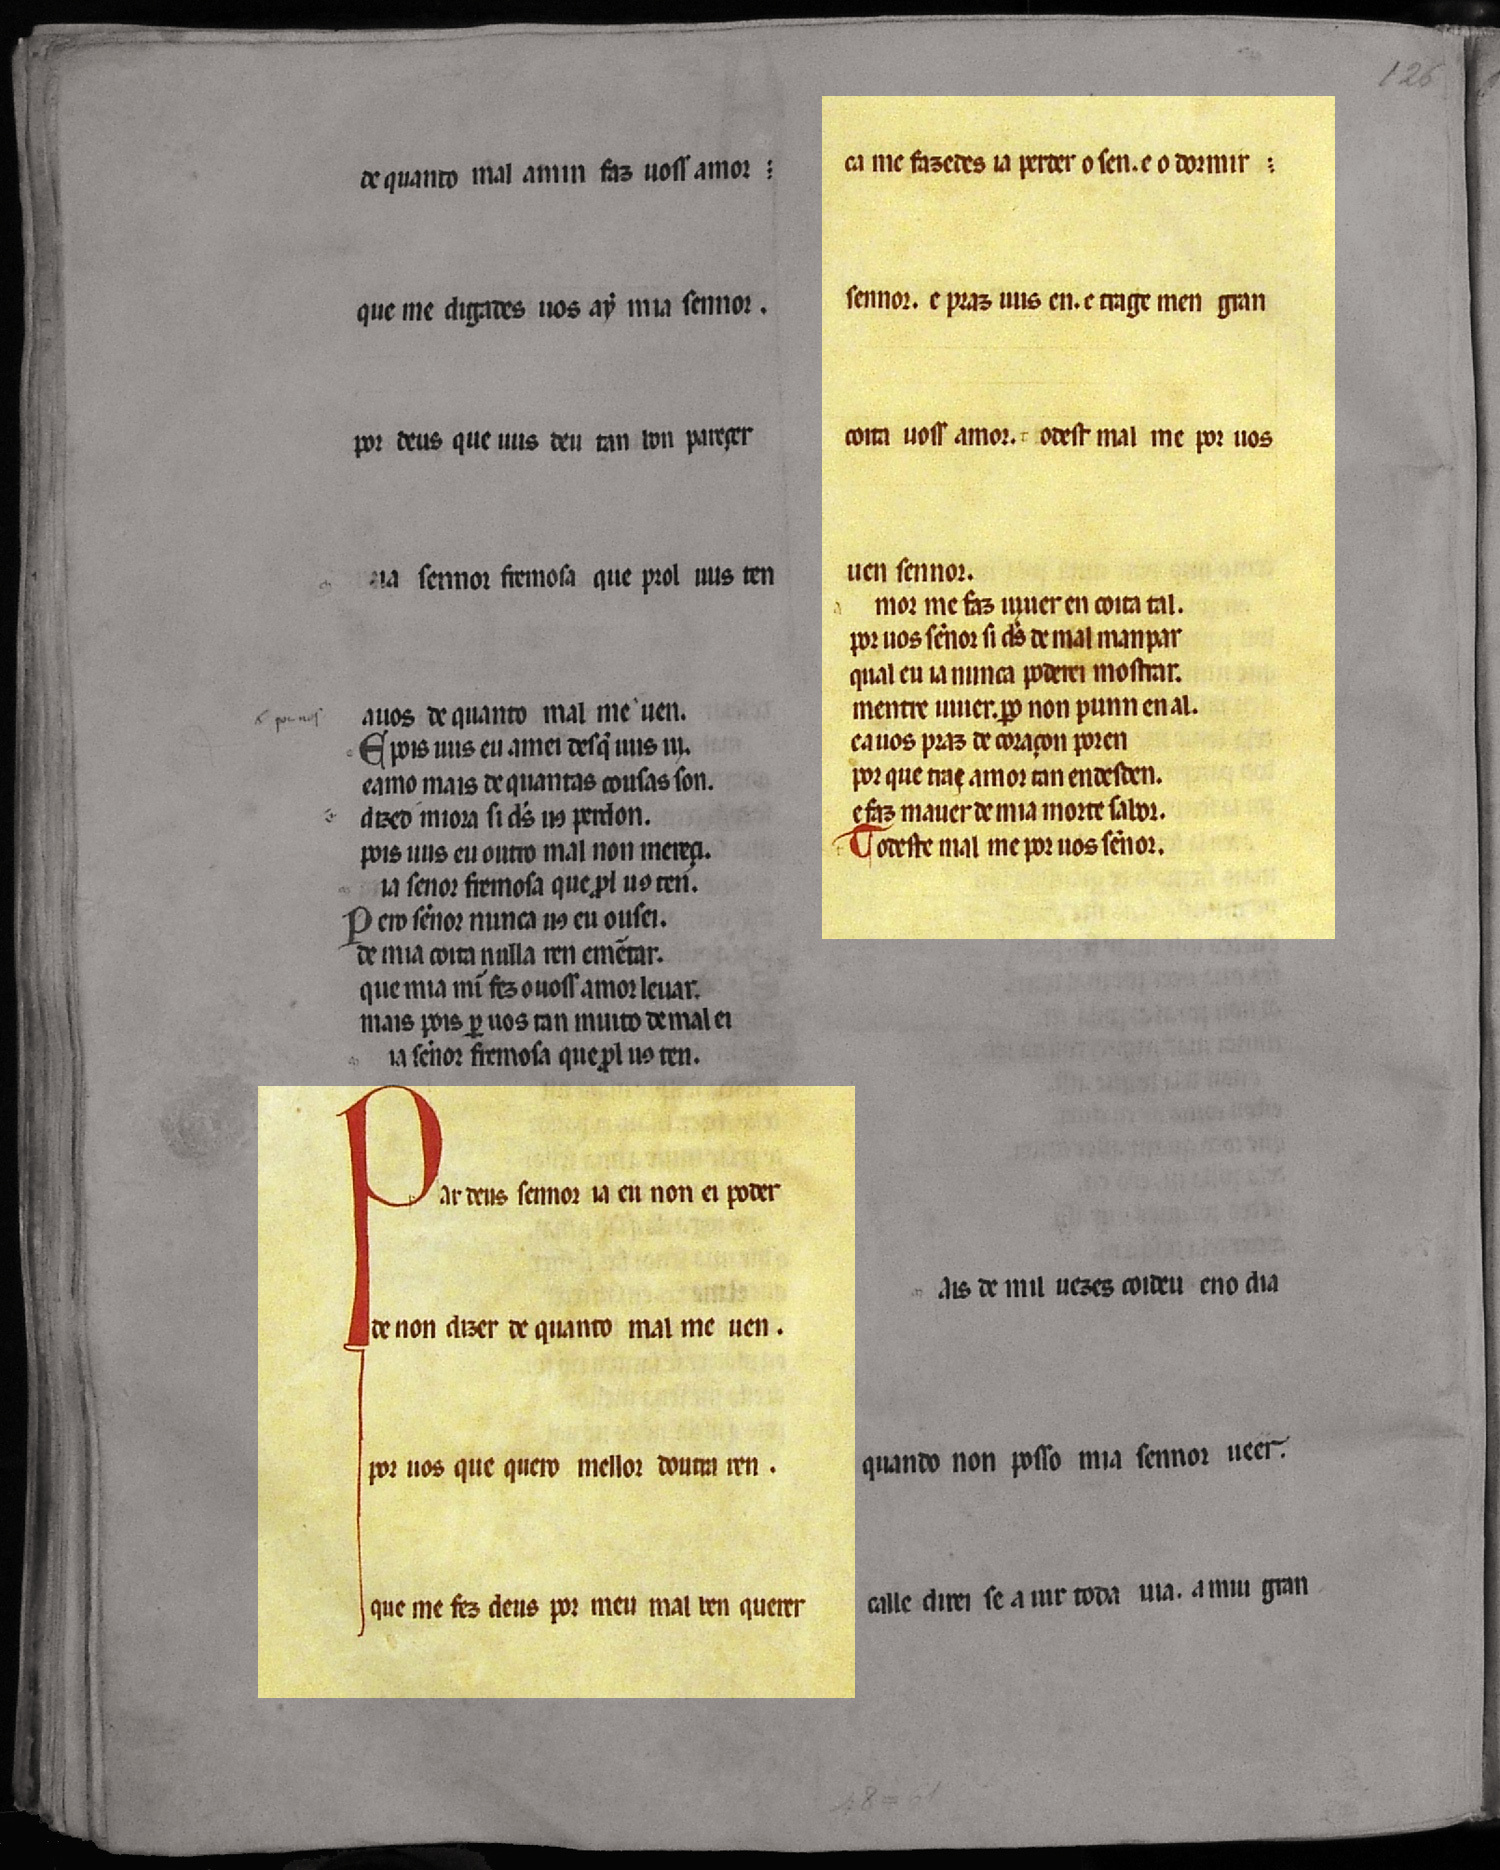 de quanto mal amin faz uoss amor
que me digades uos aẏ mia sennor.
por deus que uus deu tan bon pareçer
ia sennor fremosa que prol uus ten
auos de quanto mal me uen.
E pois uus eu amei desq̄ uus ui.
eamo mais de quantas cousas son.
dized miora si d̄s uꝯ perdon.
pois uus eu outro mal non mereçi.
ia senor fremosa que ꝓl uꝯ ten.
Pero sēnor nunca uꝯ eu ousei.
de mia coita nulla ren emētar.
que mia mī fez o uoss amor leuar.
mais pois ꝑ uos tan muito de mal ei
ia sēnor fremosa que ꝓl uꝯ ten.
Par deus sennor ia eu non ei poder
de non dizer de quanto mal me uen.
por uos que quero mellor doutra ren.
que me fez deus por meu mal ben querer
ca me fazedes ia perder o sen. e o dormir
sennor. e praz uus en. e trage men gran
coita uoss amor. t odest mal me por uos
uen sennor.
a mor me faz uiuer en coita tal.
por uos sēnor si d̄s de mal manpar
qual eu ia nunca poderei mostrar.
mentre uiuer. ꝑo non punn en al.
ea uos praz de coraçon poren
por que trag amor tan endesden.
e faz mauer de mia morte sabor.
Todeste mal me por uos sēnor.
ais de mil uezes coideu eno dia
quando non posso mia sennor ueer.
calle direi se a uir toda uia. a mui gran
126